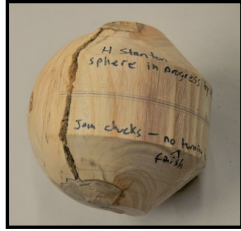 H Stanton
sphere in progress by
Jam chucks – no turning
faish